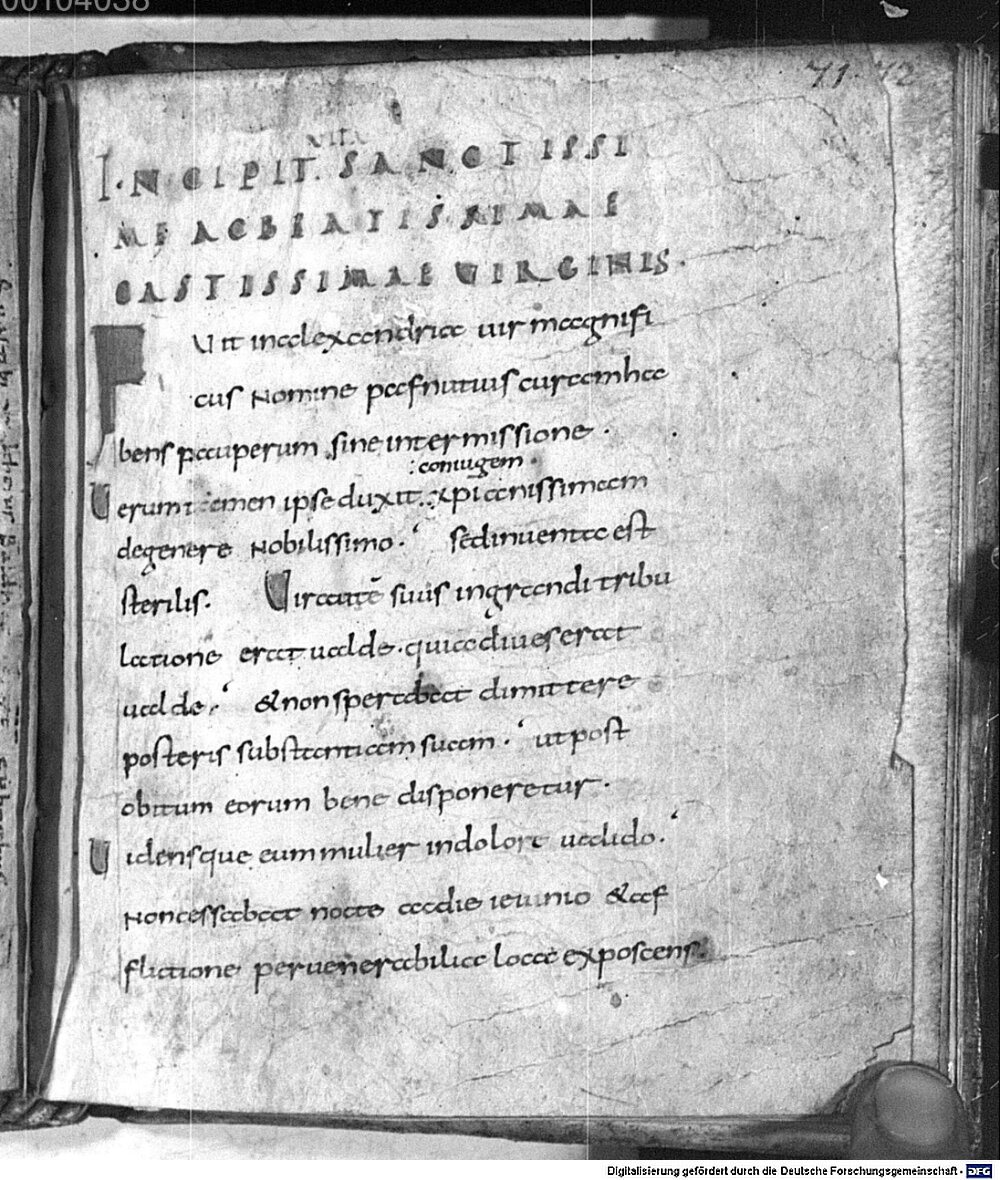 00104038
71 72
VITA
INCIPIT SANCTISSI
ME AC BEATISSIMAE
CASTISSIMAE VIRGINIS.
FUit in alexandria uir magnifi
cus Nomine pafnutius curam ha
bens pauperum sine intermissione.
:coniugem.
Uerumtamen ipse duxit. xpianissimam
degenere Nobilissimo. sedinuenta est
sterilis. Uir autē suus ingrandi tribu
latione erat ualde. quia diues erat
ualde. &non sperabat dimittere
posteris substantiam suam. ut post
obitum eorum bene disponeretur.
Uidensque eum mulier indolore ualido.
Non cessabat nocte acdie ieiunio &af
flictione per uenerabilia loca exposcens.
Digitalisierung gefördert durch die Deutsche Forschungsgemeinschaft - DFG